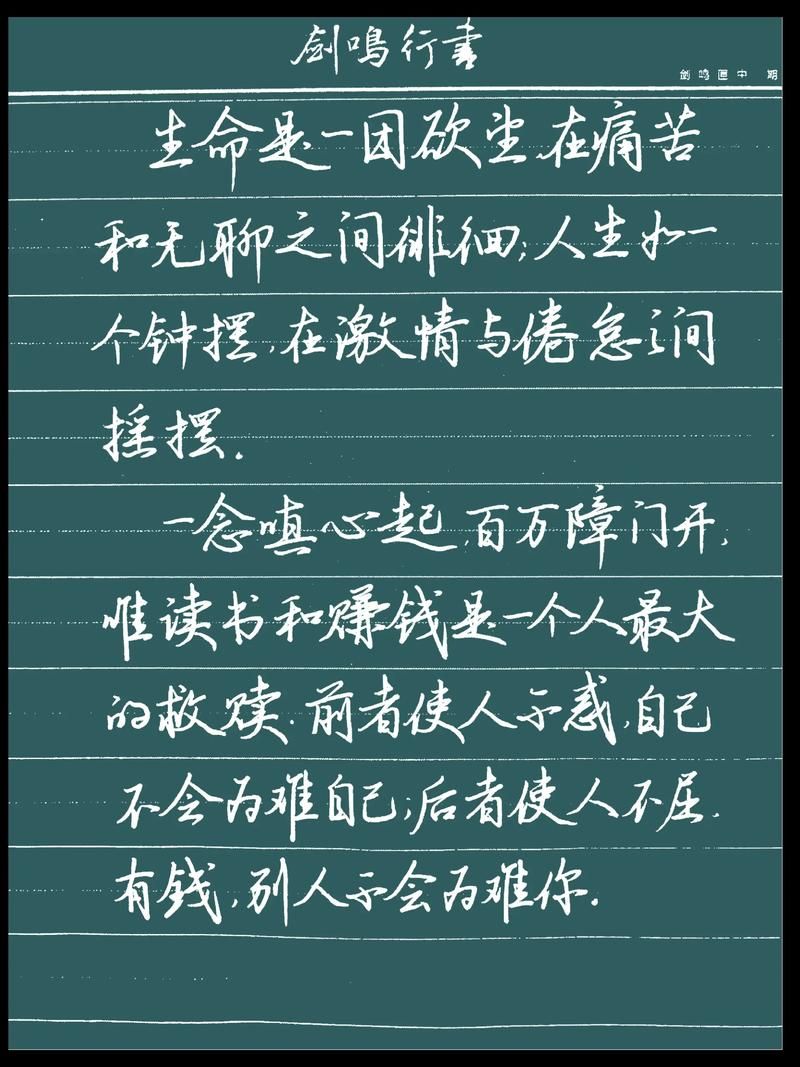 剑鸣行书
剑鸣匣中 期
生命是一团欲望,在痛苦
和无聊之间徘徊;人生如一
个钟摆,在激情与倦怠之间
摇摆.
一念嗔心起,百万障门开,
唯读书和赚钱是一个人最大
的救赎.前者使人不惑,自己
不会为难自己;后者使人不屈.
有钱,别人不会为难你.